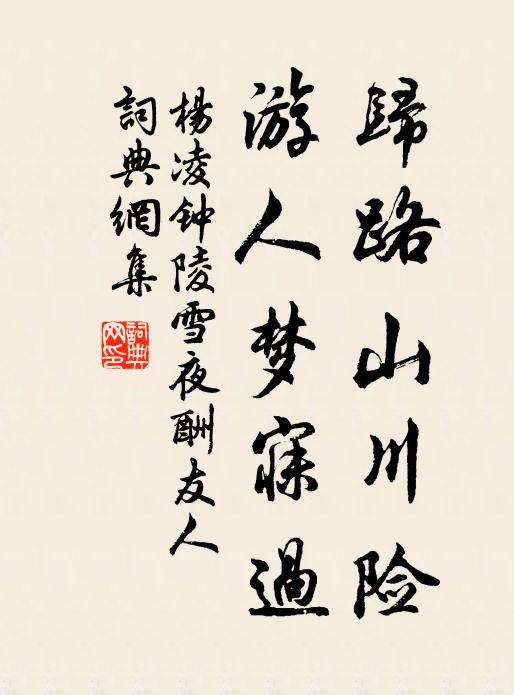 歸路山川险
游人梦寐過
楊凌钟陵雪夜酬友人
詞典網集
詞典网印